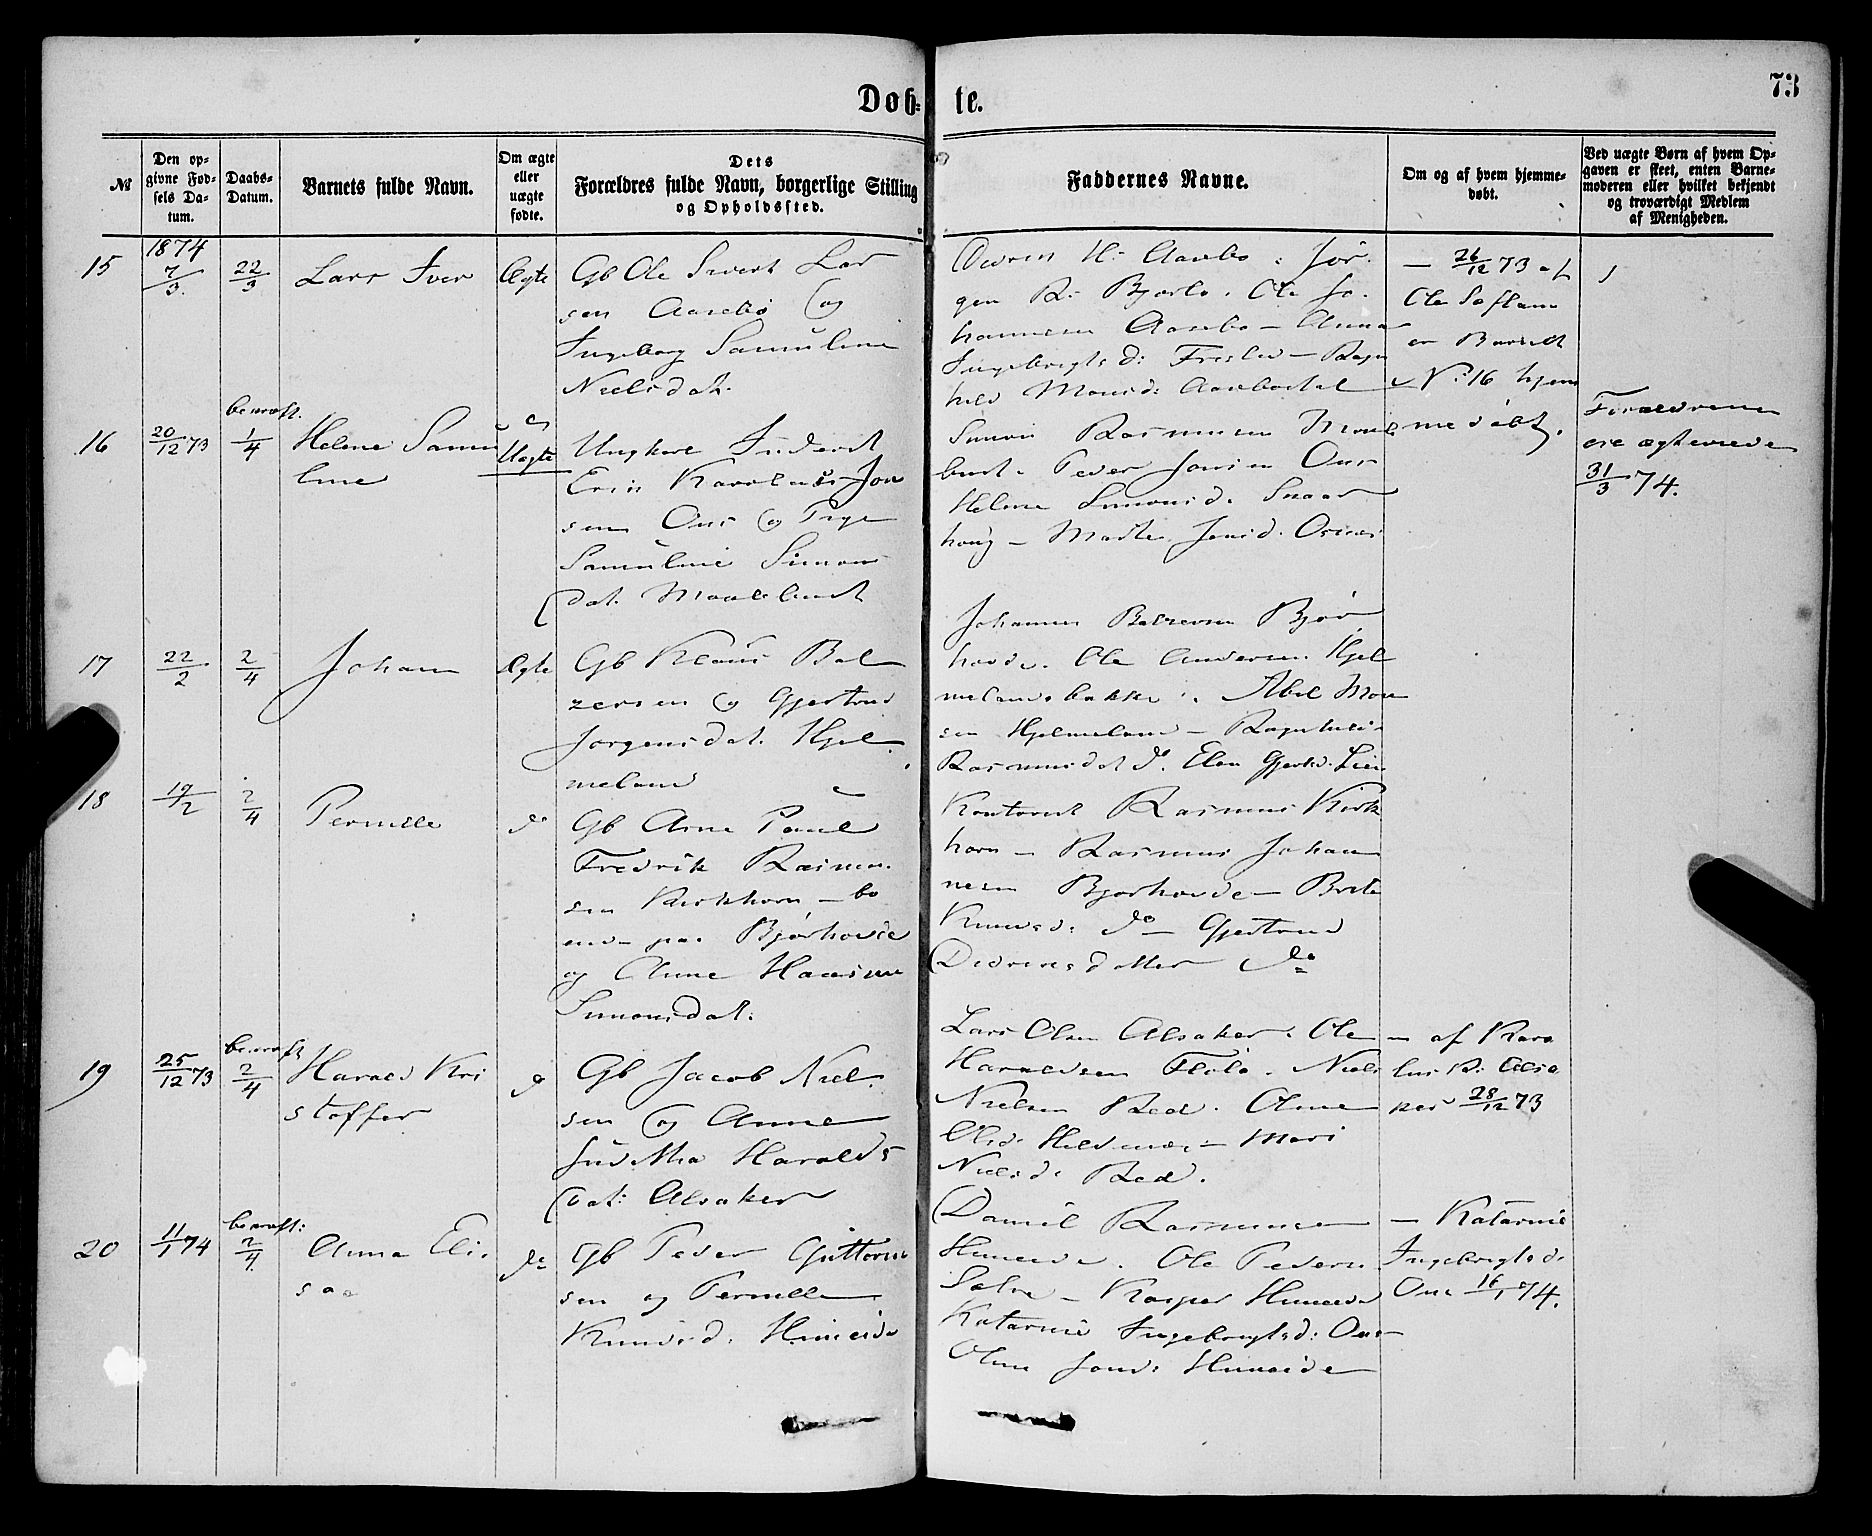 Døb-
te.
73
№
Den op-
givne Fød-
sels Da-
tum.
Daabs-
Datum.
Barnets fulde Navn.
Om ægte
eller
uægte
fødte.
Dets
Forældres fulde Navn, borgerlige Stilling
og Opholdssted.
Faddernes Navne.
Om og af hvem hjemme-
døbt.
Ved uægte Børn af hvem Op-
gaven er skeet, enten Barne-
moderen eller hvilket bekjendt
og troværdigt Medlem
af Menigheden.
1874
15
7/3.
22/3
Lars Iver
Ægte
Gb Ole Sivert Lar
sen Aasebø og
Ingeborg Samuline
Nielsdat.
H. Aasebø. Jør-
gen R. Bjørlo. Ole Jo-
hannesen Aasebø – Anna
Ingebrigtsd: – Ragn
hild Monsd:
– 26/12 73 af
Ole
er
No 16 hjem
medøbt.
16
20/12 73
bekræft.
1/4
Helene Samu
line
Uægte
Ungkarl
Karolus Jon
sen Ous og Pige
Samuline Simons
dat. Maalbust
Simon Rasmusen Maal
bust. Peder Jonsen Ous
Helene Simonsd.
haug – Marthe Jonsd.
Forældrene
ere ægteviede
31/3 74.
17
22/2
2/4
Johan
Ægte
Gb Klaus Bal
zersen og Gjertrud
Jørgensdat. Hjel
meland
Johannes Balzersen Bjør
hovde. Ole Andersen Hjel
melandsbakke. Abel Mon
sen Hjelmeland – Ragnhild
Rasmusdat do. Elen Gjertsd.
18
19/2
2/4
Pernille
do
Gb Arne Paul
Fredrik Rasmu
sen Kirkhorn – bo
ende paa Bjørhovde
og Anne
Simonsdat:
Rasmus Kirk
horn – Rasmus Johan
nesen Bjørhovde – Brite
Knudsd: do – Gjertrud
Didriksdatter do
19
25/12 73
bekræft
2/4
Harald Kri
stoffer
do
Gb Jacob Niel
sen og Anne
Juditha Haralds
dat: Alsaker
Lars Olsen Alsaker. Ole
Haraldsen Flølo. Niels
Nielsen Red. Anne
Olsd. – Mari
Nielsd. Red.
– af Karo
lus R. Alsa
ker 28/12 73
20
11/1 74
bekræft:
2/4.
Anna Eli
saa
do
Gb Peder Guttorm
sen og Pernille
Knudsd: Huneide
Daniel Rasmusen
Huneide. Ole Pedersen
– Kasper Huneide
Katarine Ingebrigtsd: Ous
Oline Jonsd: Huneide
– Katarine
Ingebrigtsd.
Ous 16/1 74.